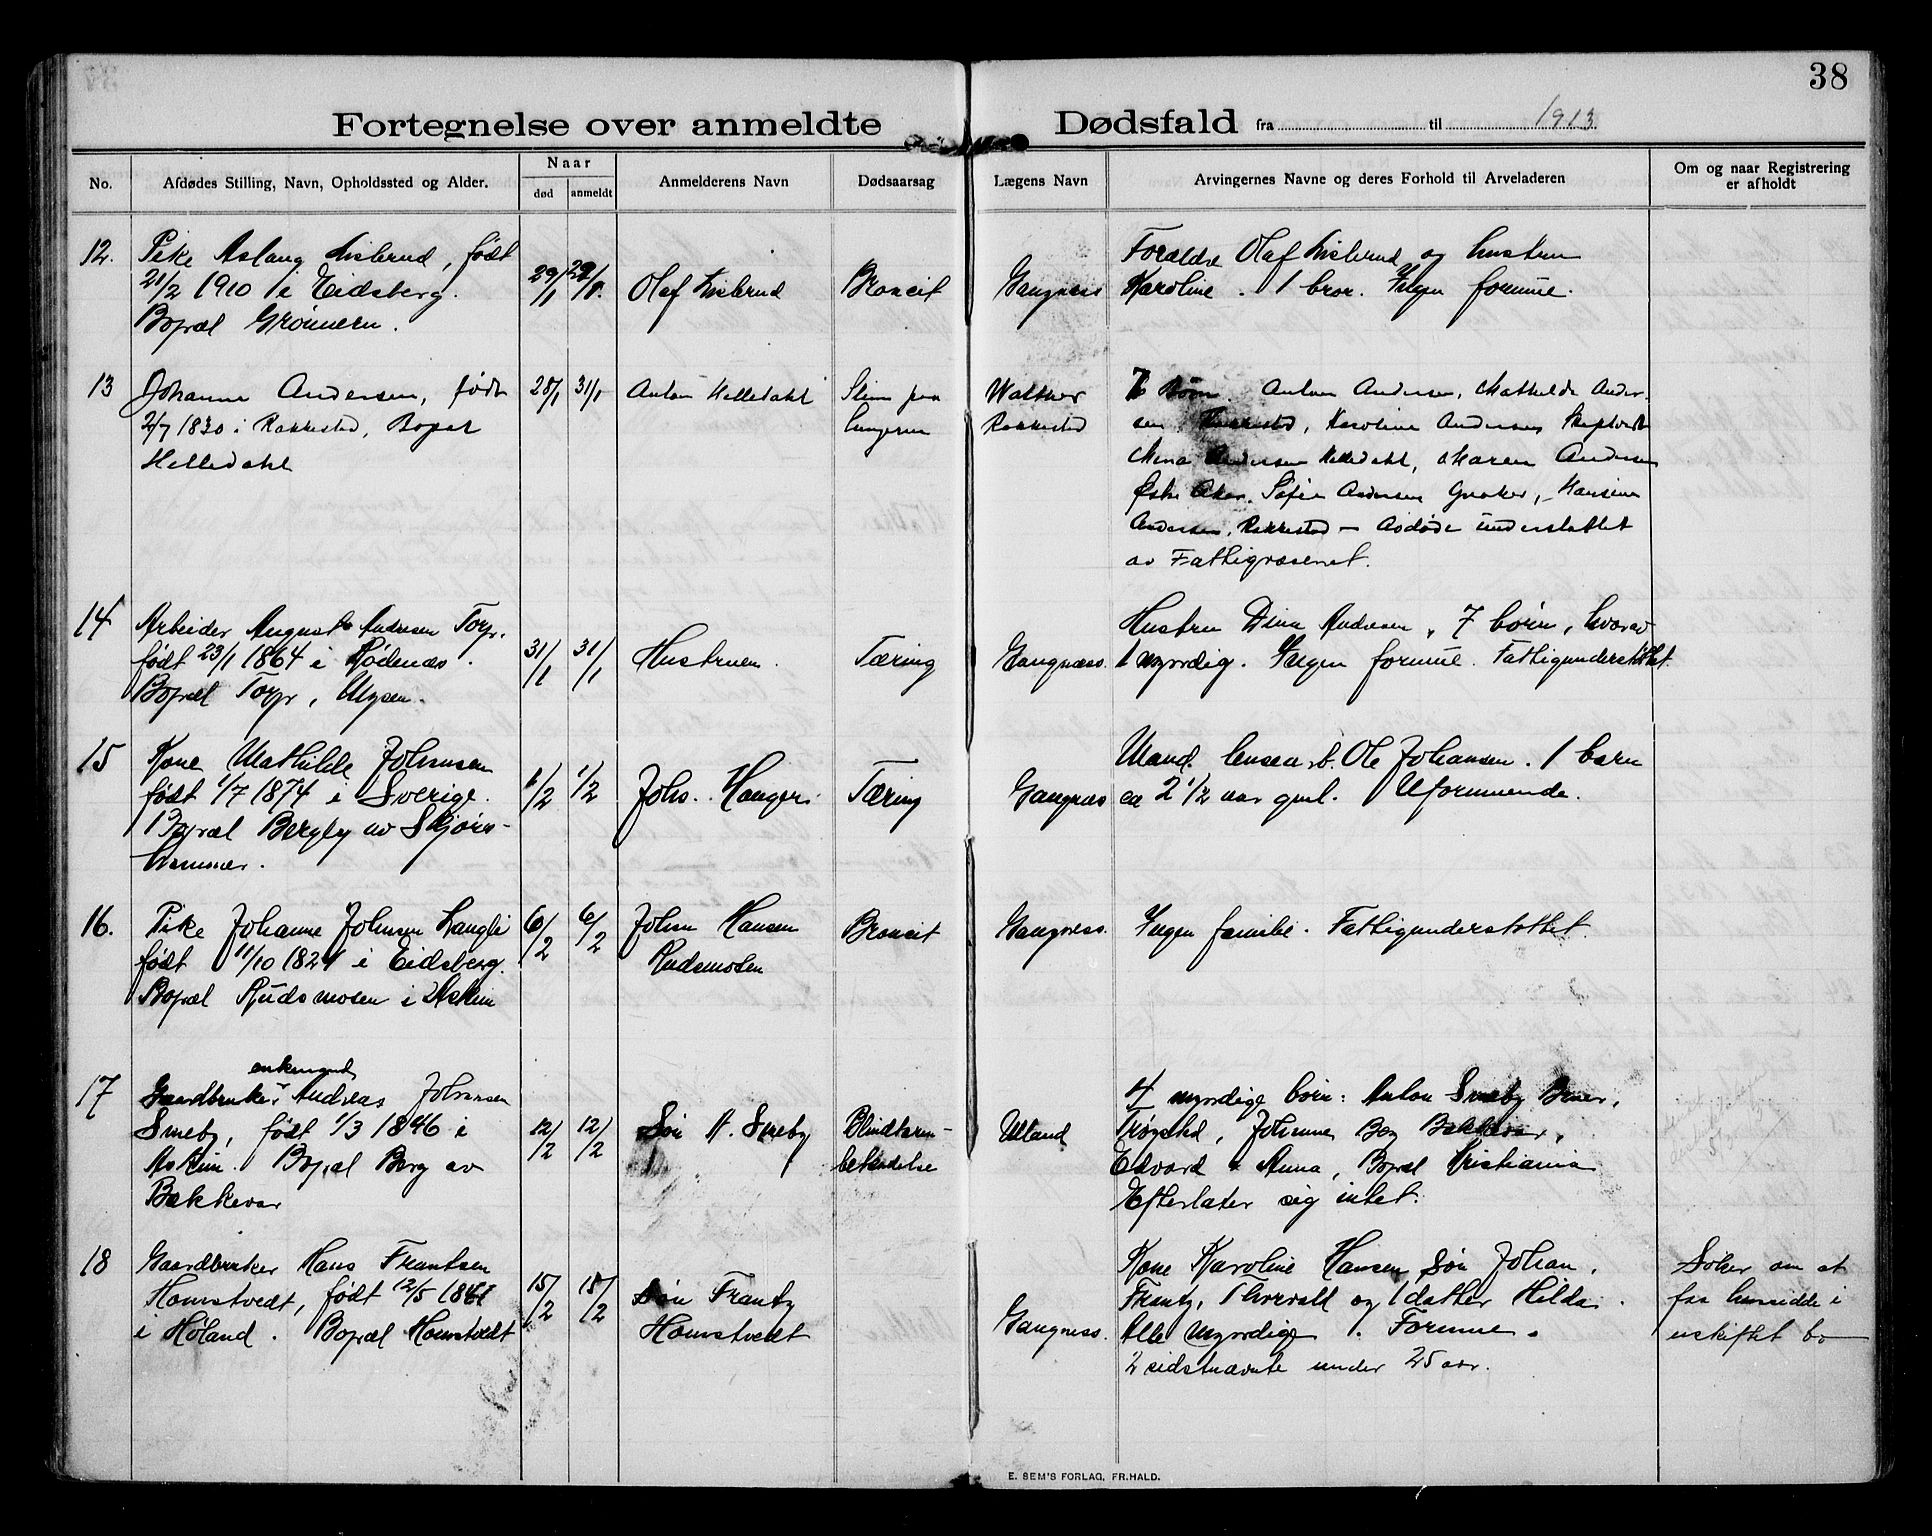 38
Fortegnelse over anmeldte Dødsfald fra til 1913.
No.
Afdødes Stilling, Navn, Opholdssted og Alder.
Naar
død
anmeldt
Anmelderens Navn
Dødsaarsag
Lægens Navn
Arvingernes Navne og deres Forhold til Arveladeren
Om og naar Registrering
er afholdt
12.
Pike Aslaug Lislerud, født
21/2 1910 i Eidsberg.
Bopæl Grönnern.
29/1
Olaf Lislerud
Broncit
Gangness
Forældre Olaf Lislerud og hustru
Karoline. 1 bror. Ingen formue.
13
Johanne Andersen, født
2/7 1830 i Rakkestad, Bopæl
Helledahl
28/1
31/1
Anton Helledahl
Slim paa
lungerne
Walther
Rakkestad
7 Börn. Anton Andersen, Mathilde Ander-
sen Rakkestad, Karoline Andersen Skiptvedt
Mina Andersen Helledahl, Maren Andersen
Østre Aker. Sofie Andersen, Hansine
Andersen, Rakkestad — Avdöde understøttet
av Fattigvæsenet.
14
Arbeider August Andresen Torp,
født 23/1 1864 i Rødenæs.
Bopæl Torp, Mysen.
31/1
31/1
Hustruen.
Tæring
Gangnæss.
Hustru Dina Andresen, 7 börn, hvorav
1 myndig. Ingen formue. Fattigunderstöttet.
15
Kone Mathilde Johansen
født 1/7 1874 i Sverige.
Bopæl Bergby av Skjøns-
hammer.
1/2
1/2
Johs. Hanger.
Tæring
Gangnæs
Mand Ole Johansen. 1 barn
ca 2 1/2 aar gml. Uformuende.
16.
Pike Johanne Johnsen Langli
født 11/10 1824 i Eidsberg.
Bopæl Rudsmosen i Askim
6/2
6/2
Johan Hansen
Rudsmosen
Broncit
Gangness.
Ingen familie. Fattigunderstøttet.
17
enkemand
Gaardbruker Andreas Johansen
Smeby, født 1/3 1846 i
Askim. Bopæl Berg av
Bakkevar
12/2
12/2
Sön A. Smeby
Blindtarm-
betændelse
Ulland
4 myndige börn: Anton Smeby
Trøgstad, Johanne Berg Bakkevar,
Edvard & Anna, Bopæl Kristiania
Efterlater sig intet.
18
Gaardbruker Hans Frantsen
Homstvedt, født 12/5 1841
i Høland. Bopæl Homstvedt
15/2
15/2
Sön Frantz
Homstvedt
Gangness.
Kone Karoline Hansen Sön Johan,
Frantz, Thorvald og 1 datter Hilda.
Alle myndige. Formue.
2 sidstnævnte under 25 aar.
Søker om at
faa hensidde i
uskiftet bo
E. SEM'S FORLAG, FR.HALD.